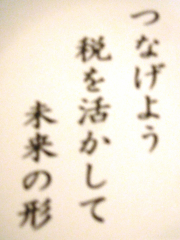 つなげよう
税を活かして
未来の形